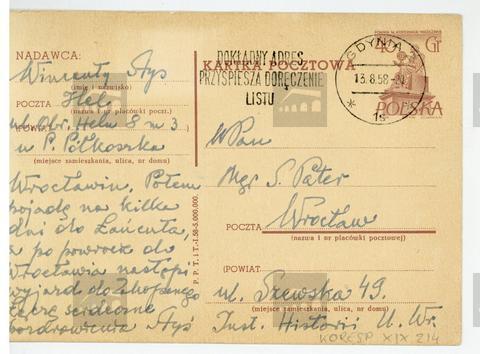 NADAWCA:
Wincenty Styś
(imię i nazwisko)
POCZTA Hel
(nazwa i nr placówki poczt.)
ul. Obr. Helu 8 m 3
(POWIAT)
u P. Półkoszka
(miejsce zamieszkania, ulica, nr domu)
Wrocławiu. Potem
pojadę na kilka
dni do Łańcuta,
a po powrocie do
Wrocławia nastąpi
wyjazd do Zakopanego
Łączę serdeczne
pozdrowienia Styś
P. P. T. i T.-I.58-5.000.000.
KARTKA POCZTOWA
DOKŁADNY ADRES
PRZYSPIESZA DORĘCZENIE
LISTU
GDYNIA 2
13.8.58
1s
40 Gr
POLSKA
WPan
Mgr S. Pater
POCZTA Wrocław
(nazwa i nr placówki pocztowej)
(POWIAT)
ul. Szewska 49.
(miejsce zamieszkania, ulica, nr domu)
Inst. Historii U. Wr.
KORESP XIX 214